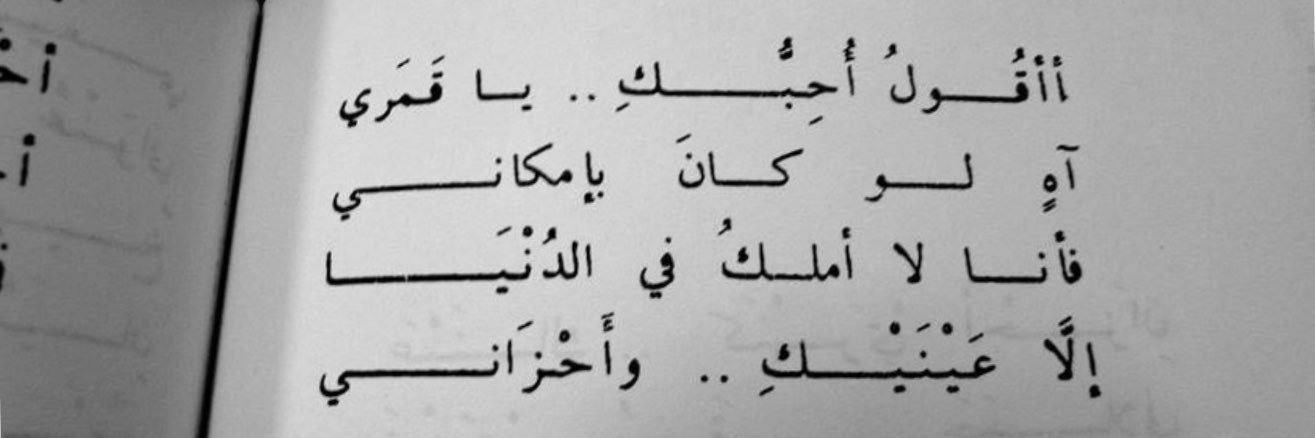 أأقُولُ أُحِبُّكِ .. يا قَمَري
آهٍ لو كانَ بإمكاني
فأنا لا أملكُ في الدُنْيَا
إلَّا عَيْنَيْكِ .. وأَحْزَاني